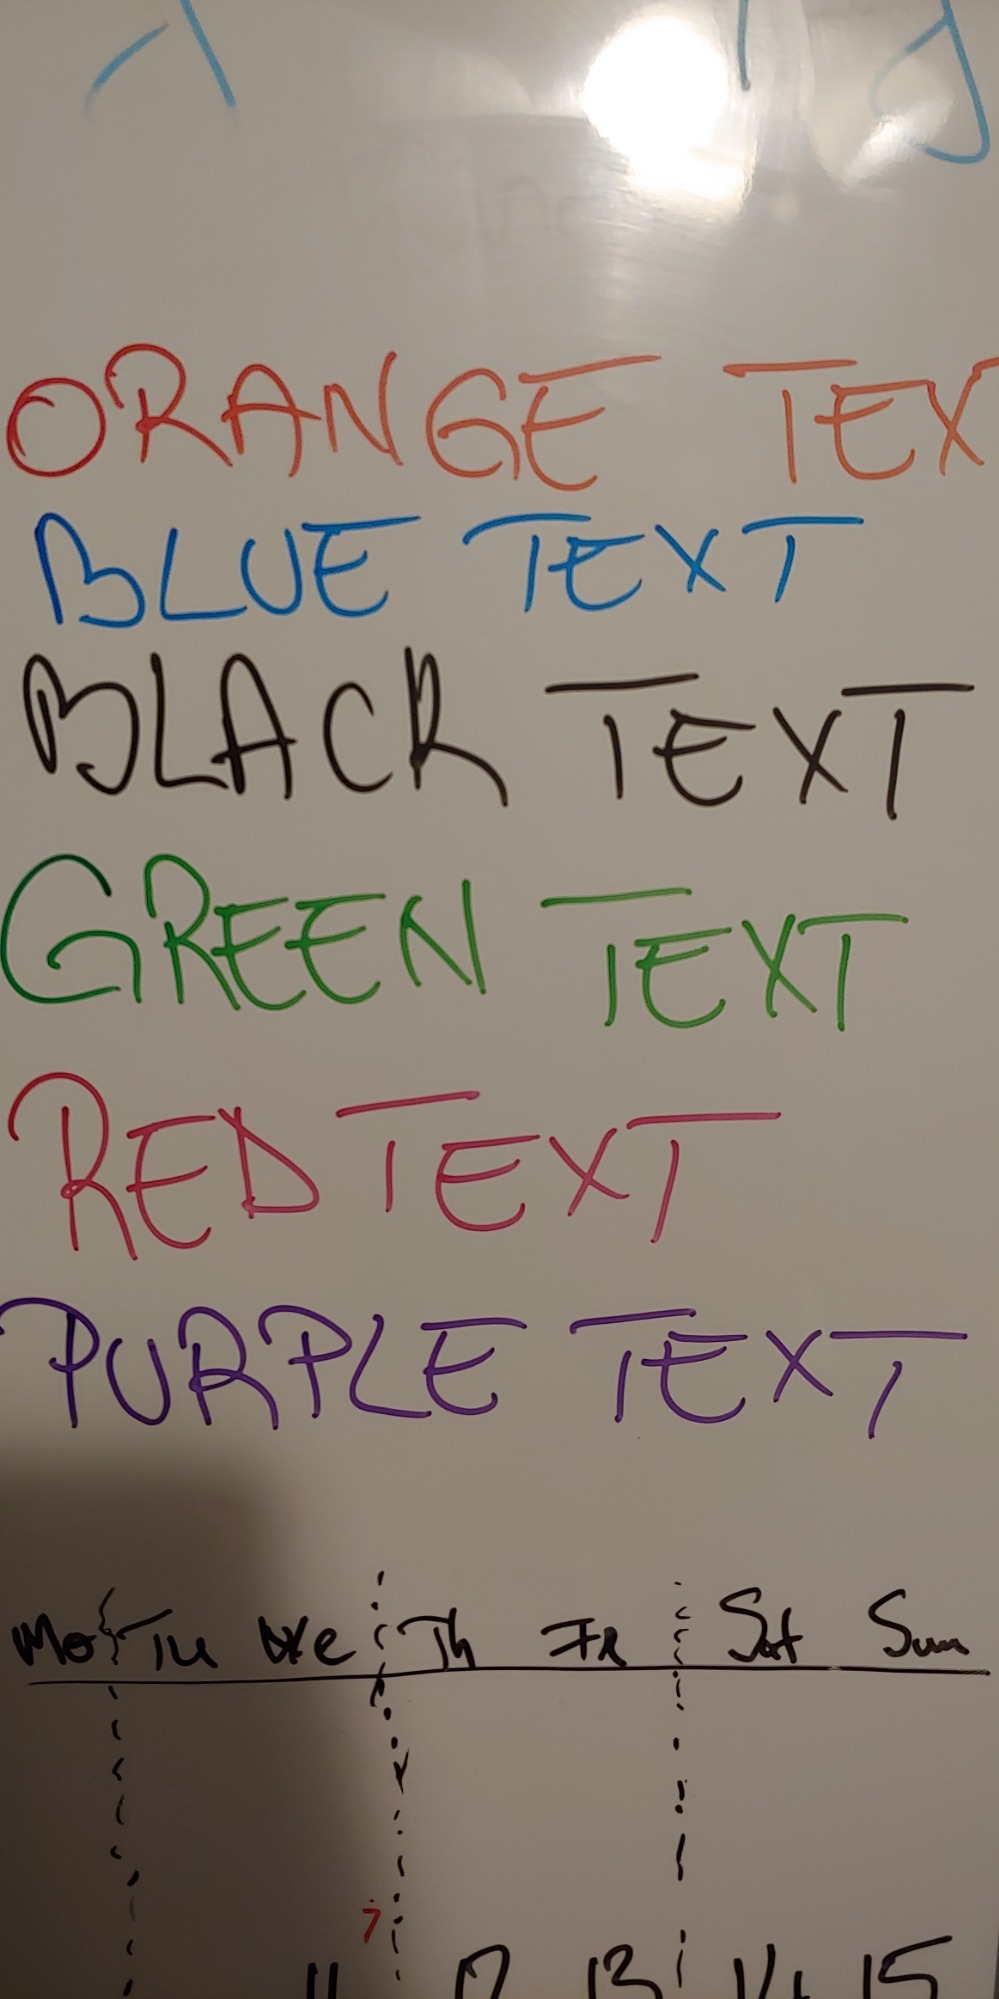 ORANGE TEX
BLUE TEXT
BLACK TEXT
GREEN TEXT
RED TEXT
PURPLE TEXT
Mo Tu We Th FR Sat Sun
7
11 12 13 14 15